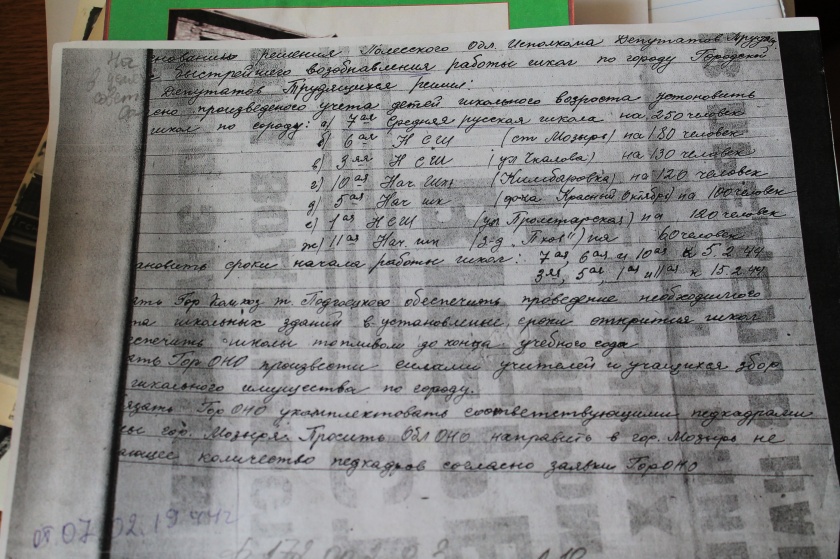 На основанию решения Полесского Обл. Исполкома Депутатов Трудящ.
быстрейшего возобнавления работы школ по городу Городской
Депутатов Трудящихся решил:
произведеного учета детей школьного возраста установить
школ по городу: а) 7ая Средняя русская школа на 250 человек
б) 6ая Н С Ш (ст Мозырь) на 180 человек
в) 3яя Н С Ш (ул Чкалова) на 130 человек
г) 10ая Нач. шк (Кимбаровка) на 120 человек
д) 5ая Нач шк (дока Красный Октябрь) на 100 человек
е) 1ая Н С Ш (ул Пролетарская) на 120 человек
ж) 11ая Нач. шк на 60 человек
ановить сроки начала работы школ: 7ая 6ая и 10ая к 5.2.44
3яя, 5ая, 1ая и 11ая к 15.2.44
ать Гор Комхоз т. обеспечить проведение необходимого
та школьных зданий в установлены, сроки открытия школ
спечить школы топливом до конца учебного года
ать Гор ОНО произвести силами учителей и учащихся збор
школьного имущества по городу.
язать Гор ОНО укомплектовать соответствующими педкадрами
лы гор. Мозыря. Просить ОблОНО направить в гор. Мозырь не
ающее количество педкадров согласно заявки ГорОНО
от 07.02.1944г